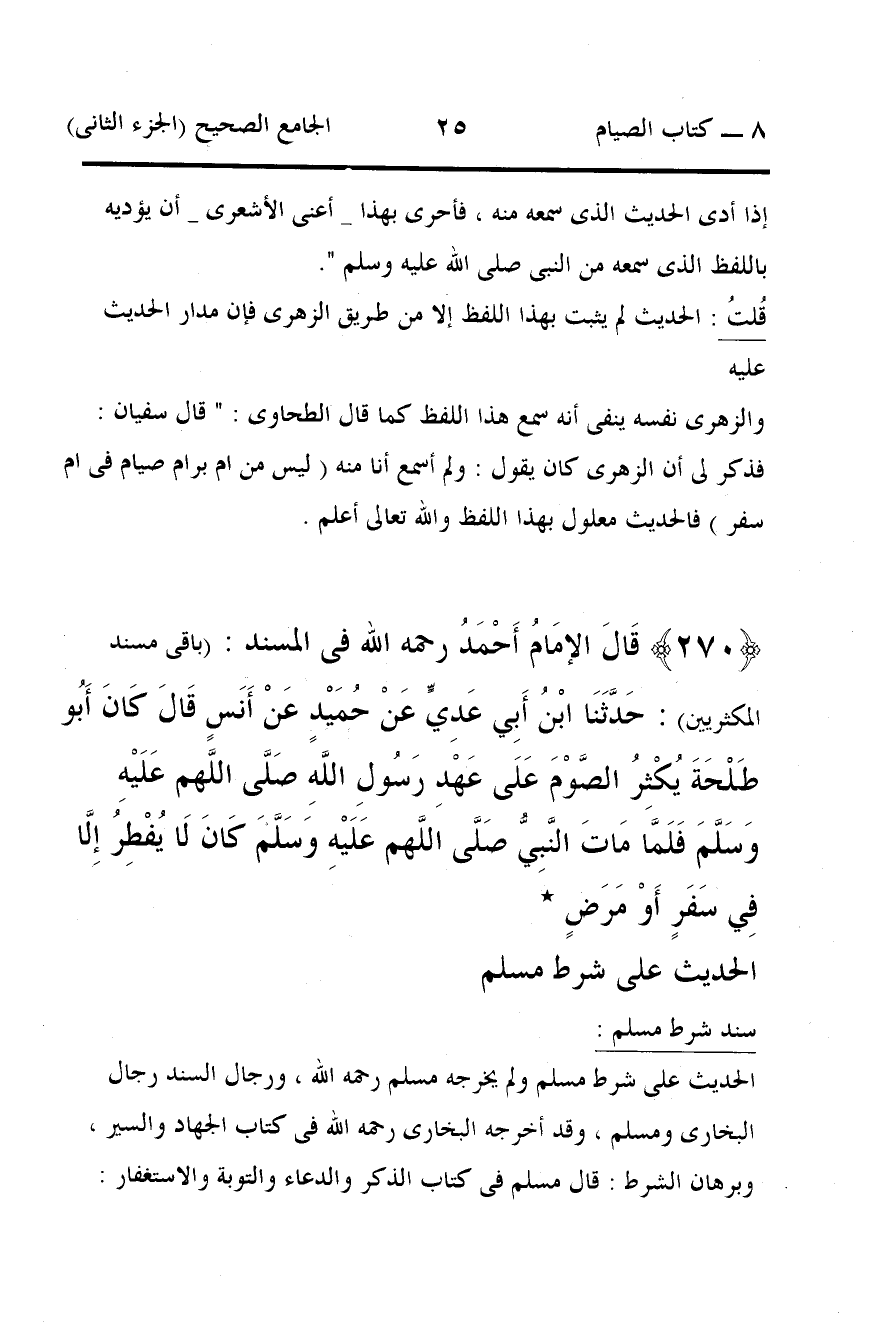 ٨ ـــ كتاب الصيام ٢٥ الجامع الصحيح (الجزء الثانى)
إذا أدى الحديث الذى سمعه منه ، فأحرى بهذا _ أعنى الأشعرى _ أن يؤديه
باللفظ الذى سمعه من النبى صلى الله عليه وسلم ".
قُلتُ : الحديث لم يثبت بهذا اللفظ إلا من طريق الزهرى فإن مدار الحديث
عليه
والزهرى نفسه ينفى أنه سمع هذا اللفظ كما قال الطحاوى : " قال سفيان :
فذكر لى أن الزهرى كان يقول : ولم أسمع أنا منه ( ليس من ام برام صيام فى ام
سفر ) فالحديث معلول بهذا اللفظ والله تعالى أعلم .
﴿٢٧٠﴾ قَالَ الإمَامُ أَحْمَدُ رحمه الله فى المسند : (باقى مسند
المكثريين) : حَدَّثَنَا ابْنُ أَبِي عَدِيٍّ عَنْ حُمَيْدٍ عَنْ أَنَسٍ قَالَ كَانَ أَبُو
طَلْحَةَ يُكْثِرُ الصَّوْمَ عَلَى عَهْدِ رَسُولِ اللَّهِ صَلَّى اللَّهم عَلَيْهِ
وَسَلَّمَ فَلَمَّا مَاتَ النَّبِيُّ صَلَّى اللَّهم عَلَيْهِ وَسَلَّمَ كَانَ لَا يُفْطِرُ إِلَّا
فِي سَفَرٍ أَوْ مَرَضٍ *
الحديث على شرط مسلم
سند شرط مسلم :
الحديث على شرط مسلم ولم يخرجه مسلم رحمه الله ، ورجال السند رجال
البخارى ومسلم ، وقد أخرجه البخارى رحمه الله فى كتاب الجهاد والسير ،
وبرهان الشرط : قال مسلم فى كتاب الذكر والدعاء والتوبة والاستغفار :